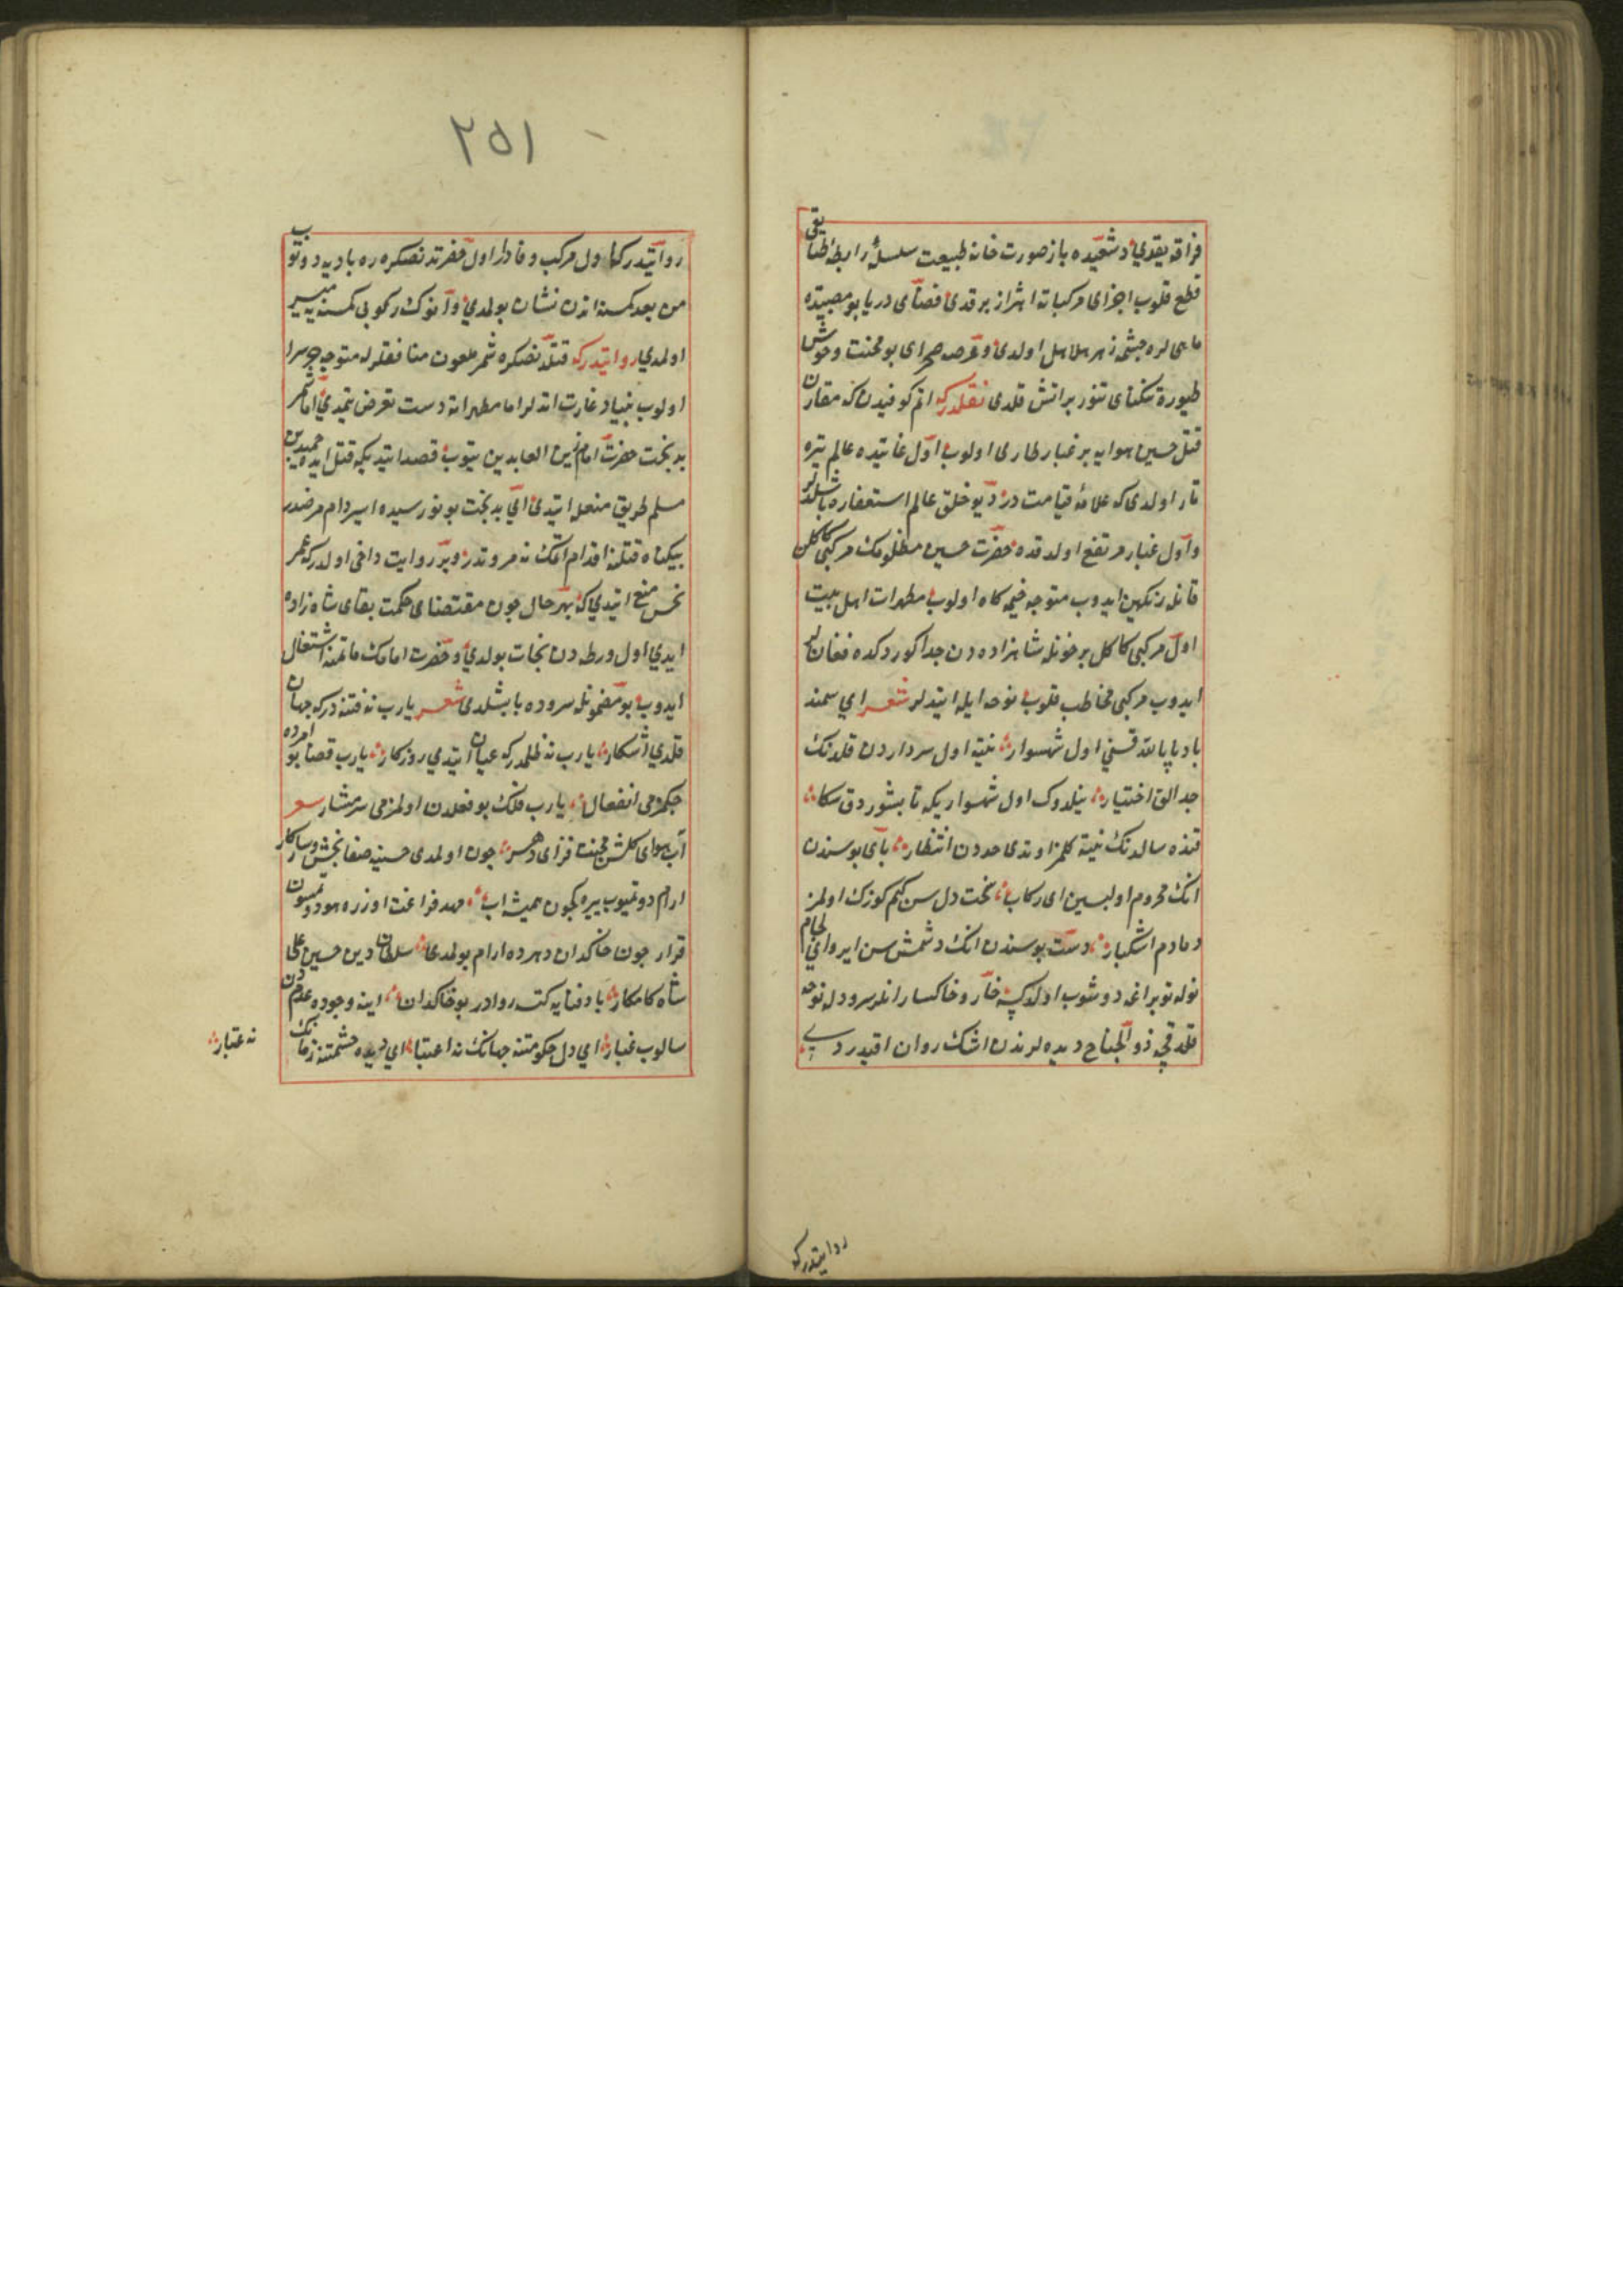 فراقه يقدي و شعبده باز صورت خانه طبيعت سلسلۀ رابطۀ طبايقى
قطع قلوب اجزاى مركباته اهتزاز بر قدى فضاى دريا بو مصيبتده
ماهى لره چشمۀ زهر هلاهل اولدى و عرصه صحراى بو محنت وحوش
طيوره تنكناى تنور براتش قلدى نقلدركه اتم كوفيدن كه مقارن
قتل حسين هوايه بر غبار طارى اولوب اول غايتده عالم تيره
تار اولدى كه علامۀ قيامت در ديو خلق عالم استغفاره باشلديلر
و اول غبار مرتفع اولدقده حضرت حسين مظلومك مركبى كاكلن
قانله رنكين ايدوب متوجه خيمه كاه اولوب مطهرات اهل بيت
اول مركبى كاكل پرخونله شاهزاده دن جدا كوردكده فغانلر
ايدوب مركبى مخاطب قلوب نوحه ايله ايتديلر شعر اي سمند
بادپا يا الله قنى اول شهسوار نيته اول سرداردن قلدنك
جدالق اختيار نيلدوك اول شهسواريكه تابشوردق سكا
قنده سالدنك نيته كلمز اوندى حددن انتظار پاى بوسندن
انك محروم اولبسين اى ركاب سخت دل سن كيم كوزك اولمز
دمادم اشكبار دست بوسندن انك دشمش سن ايرو اي لجام
نوله توپراغه دوشوب اولدكسه خار و خاكسار انلر سرودله نوحه
قلدقجه ذو الجناح ديده لرندن اشك روان اقيدردى
روايتدركه
٢٥١
روايتدركه اول مركب وفادار اول قفرتدنصكره ره باديه دوتوب
من بعد كمسنه اندن نشان بولمدي و انوك ركوبى كمسنه يه ميسر
اولمدي روايتدركه قتلدنصكره شمر ملعون منافقلرله متوجه حرمسرا
اولوب بنياد غارت اتديلر اما مطهراته دست تعرض يتمدي اما شمر
بدبخت حضرت امام زين العابدين يتوب قصد ايتديكه قتل ايده حميد بن
مسلم طريق منعله ايتدى اى بدبخت بو نورسيده اسير دام مرضدر
بيكناه قتلنه اقدام اتمك نه مروتدر و بر روايت داخى اولدركه عمر
نحس منع ايتدي كه بهر حال چون مقتضاى حكمت بقاى شاهزاده
ايدي اول ورطه دن نجات بولدي و حضرت امامك ماتمنه اشتغال
ايدوب بو مضمونله سروده باشلدى شعر يارب نه فتنه دركه جهان
قلدي اشكار يارب نه ظلمدركه عيان ايتدي روزكار يارب قضا بو امرده
چكمزمى انفعال يارب فلك بو فعلدن اولمزمى شرمسار شعر
آب هواى كلشن محنت فزاى دهر چون اولمدى حسينه صفا بخش و ساز كار
ارام دوتميوب ييره كچون هميشه اب مهد فراغت اوزره هوا دوتمسون
قرار چون خاكدان دهرده ارام بولمدى سلطان دين حسين على
شاه كامكار باد فنايه كتسه روادر بو خاكدان اينه وجوده عدمدن
سالوب غبار اي دل حكومتنه جهانك نه اعتبار اي ديده حشمتنه زمانك
نه اعتبار